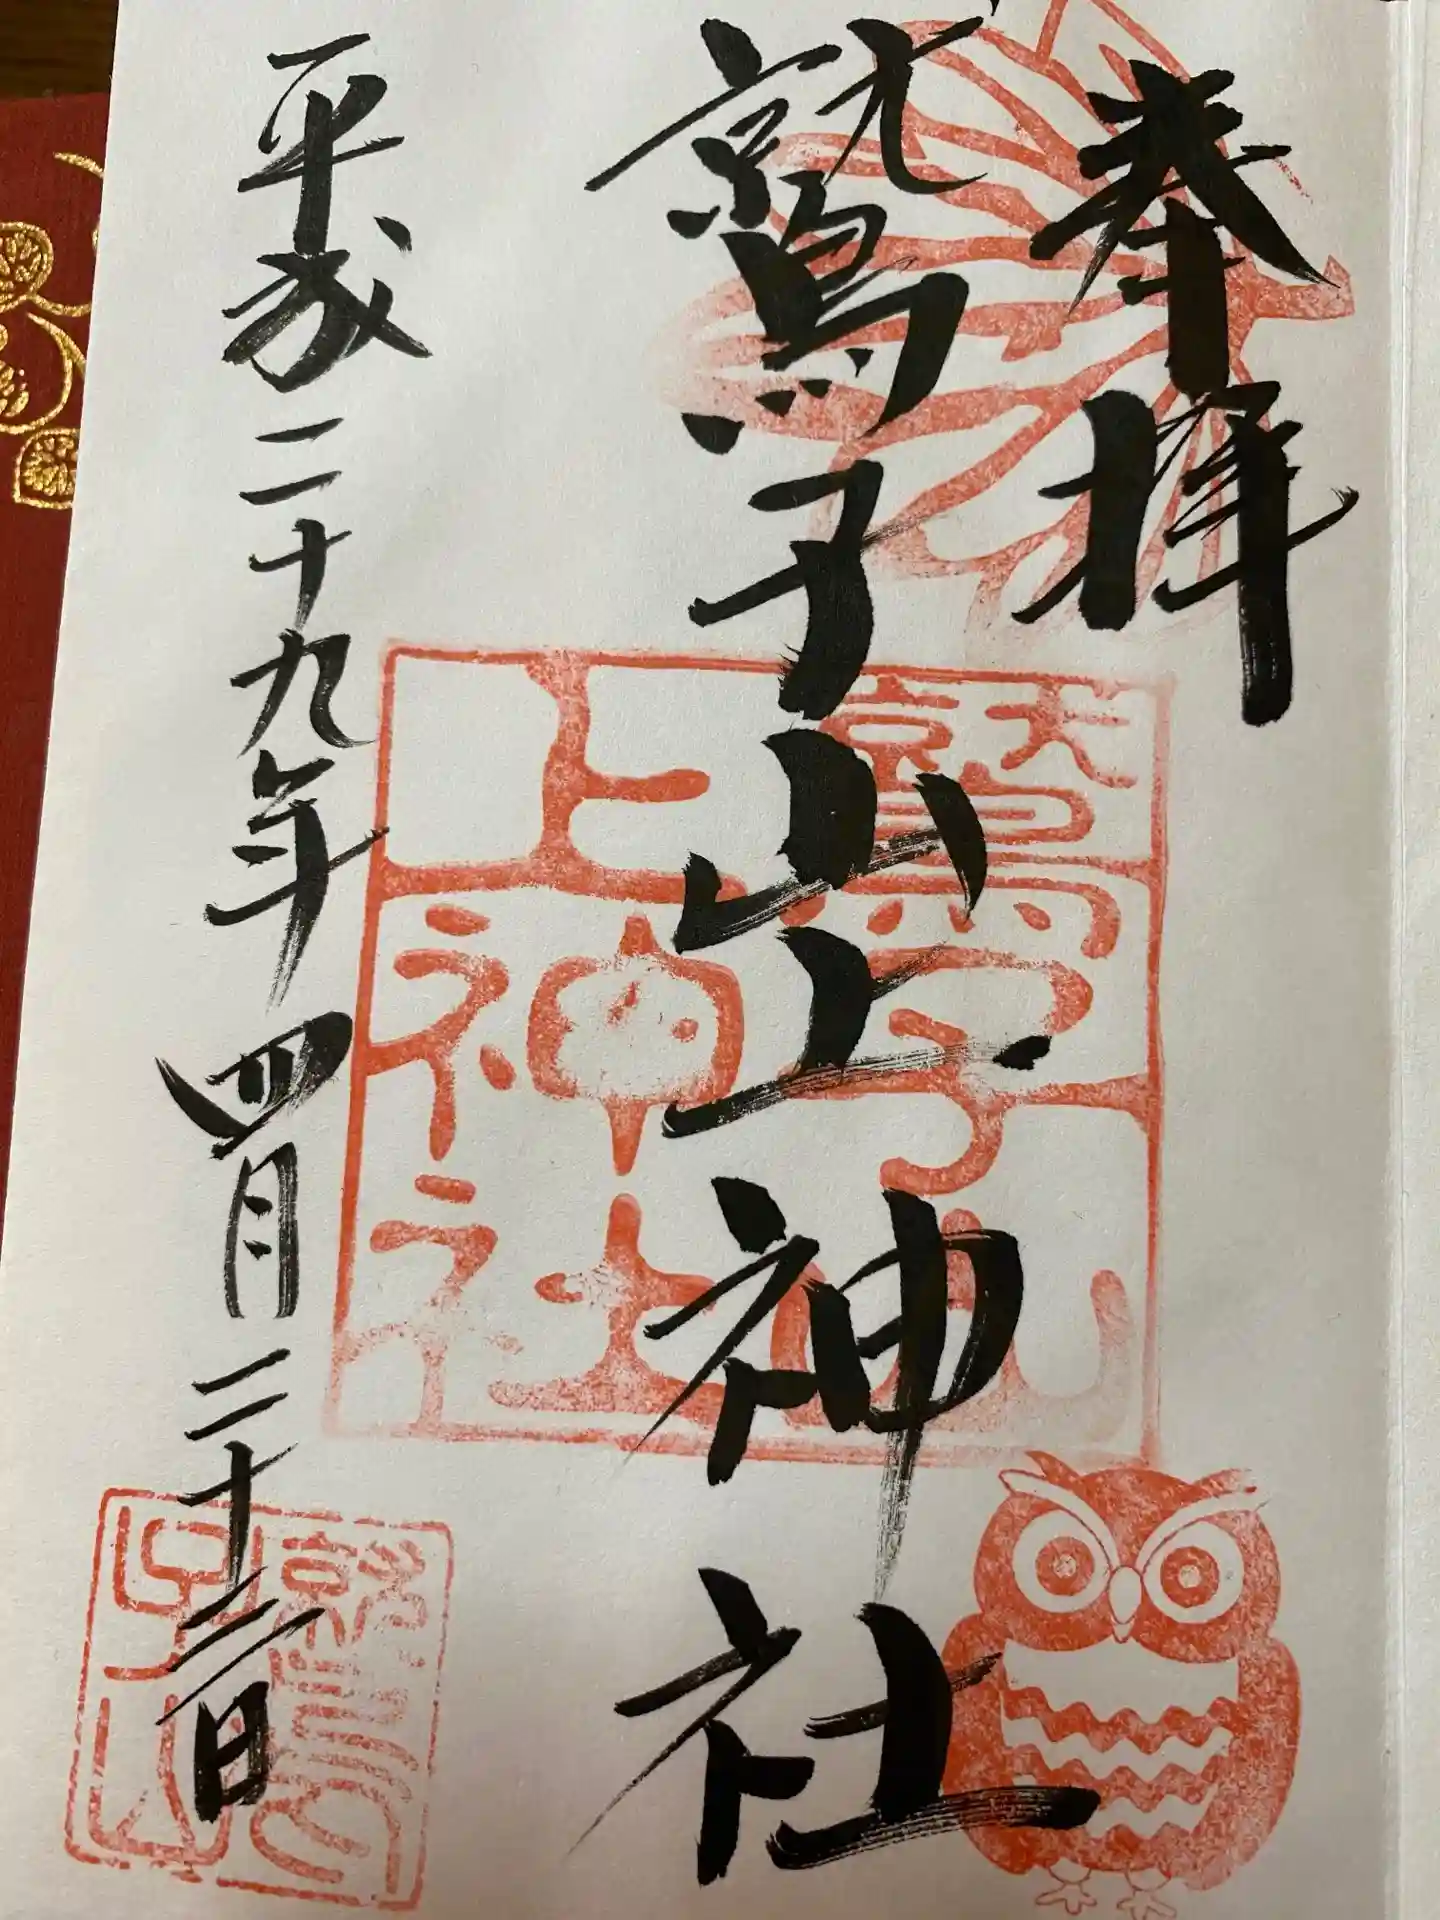 奉拝
鷲子山上神社
平成二十九年四月二十二日
鷲子山
上神社
鷲
子山